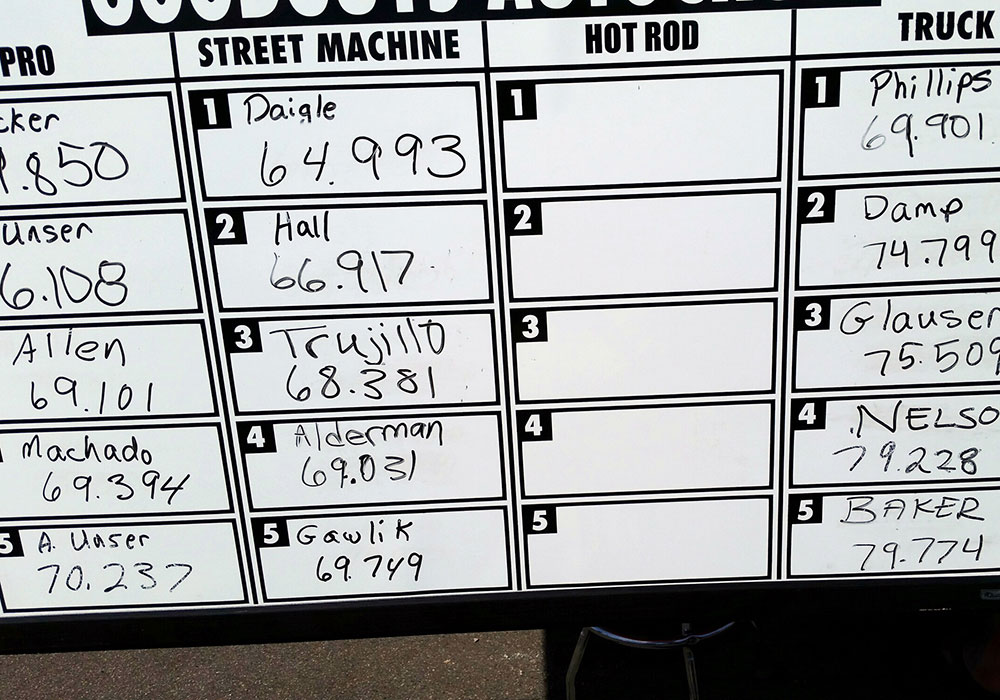 PRO
cker
.850
Unser
6.108
Allen
69.101
Machado
69.394
5 A. Unser
70.237
STREET MACHINE
1 Daigle
64.993
2 Hall
66.917
3 Trujillo
68.381
4 Alderman
69.031
5 Gawlik
69.749
HOT ROD
1
2
3
4
5
TRUCK
1 Phillips
69.901
2 Damp
74.799
3 Glauser
75.509
4 NELSO
79.228
5 BAKER
79.774